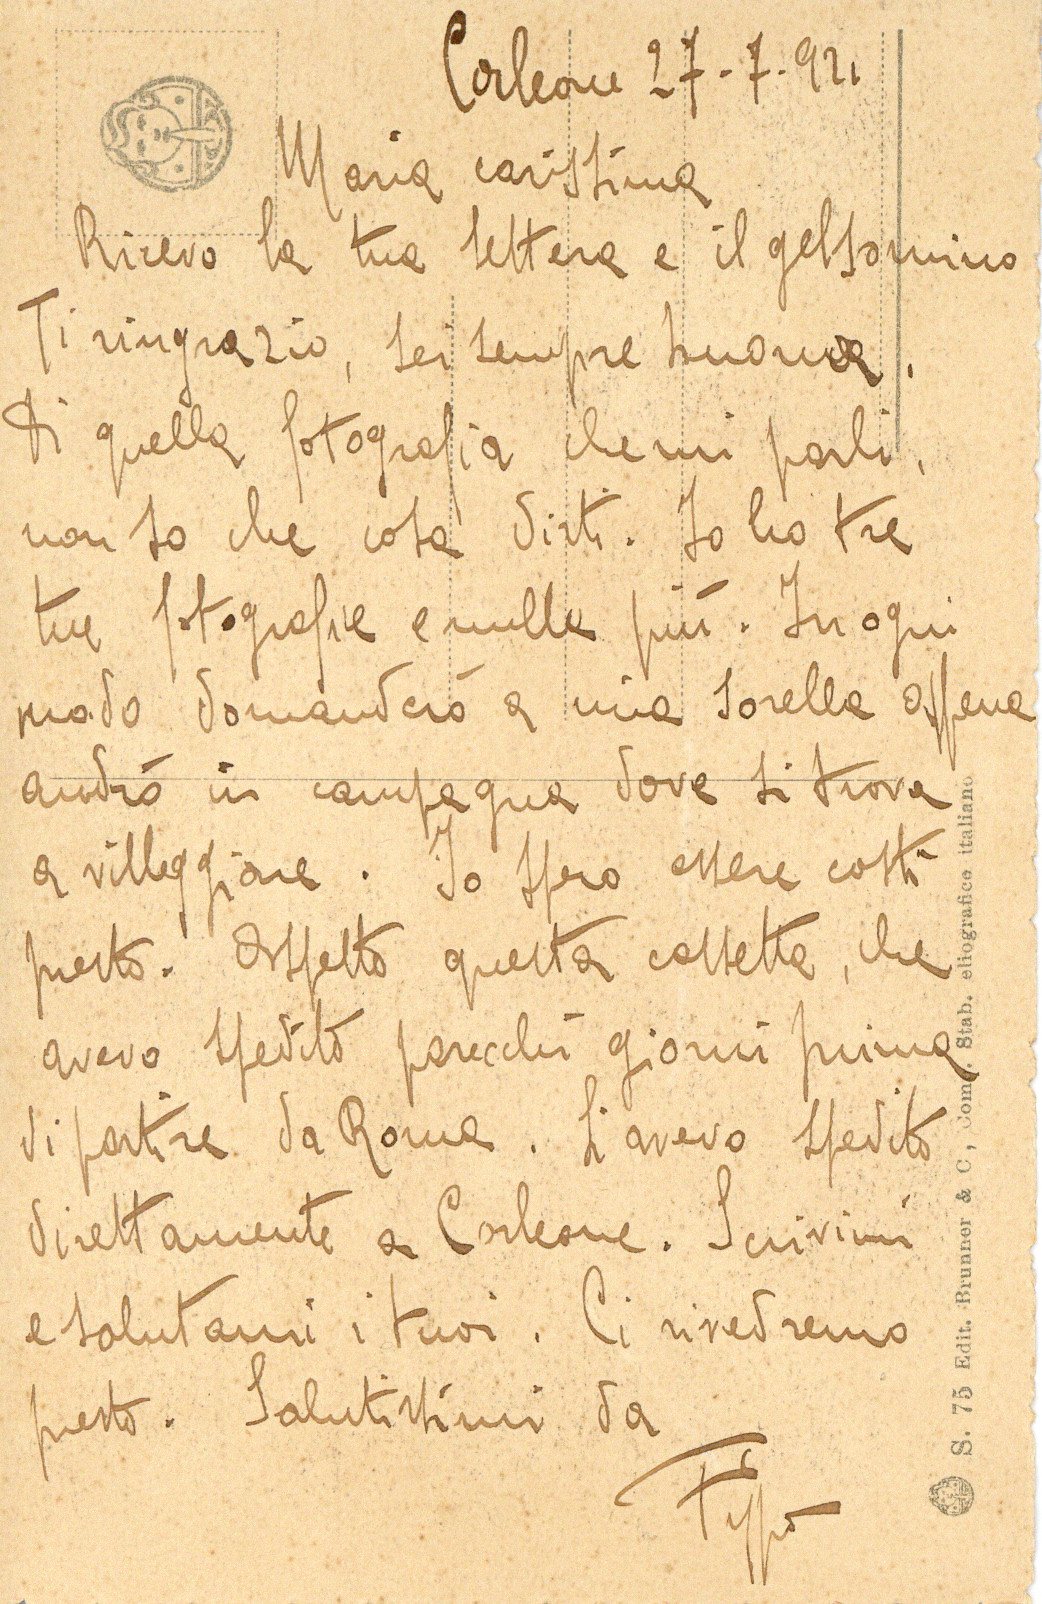 Corleone 27-7-921
Maria carissima
Ricevo la tua lettera e il gelsomino
Ti ringrazio, sei sempre buona.
Di quella fotografia che mi parli,
non so che cosa dirti. Io ho tre
tue fotografie e nulla più. In ogni
modo domanderò a mia sorella appena
andrò in campagna dove si trova
a villeggiare. Io spero essere costì
presto. Aspetto questa cassetta, che
avevo spedito parecchi giorni prima
di partire da Roma. L'avevo spedito
direttamente a Corleone. Scrivimi
e salutami i tuoi. Ci rivedremo
presto. Salutissimi da
S. 75 Edit. Brunner & C, Como. Stab. eliografico italiano